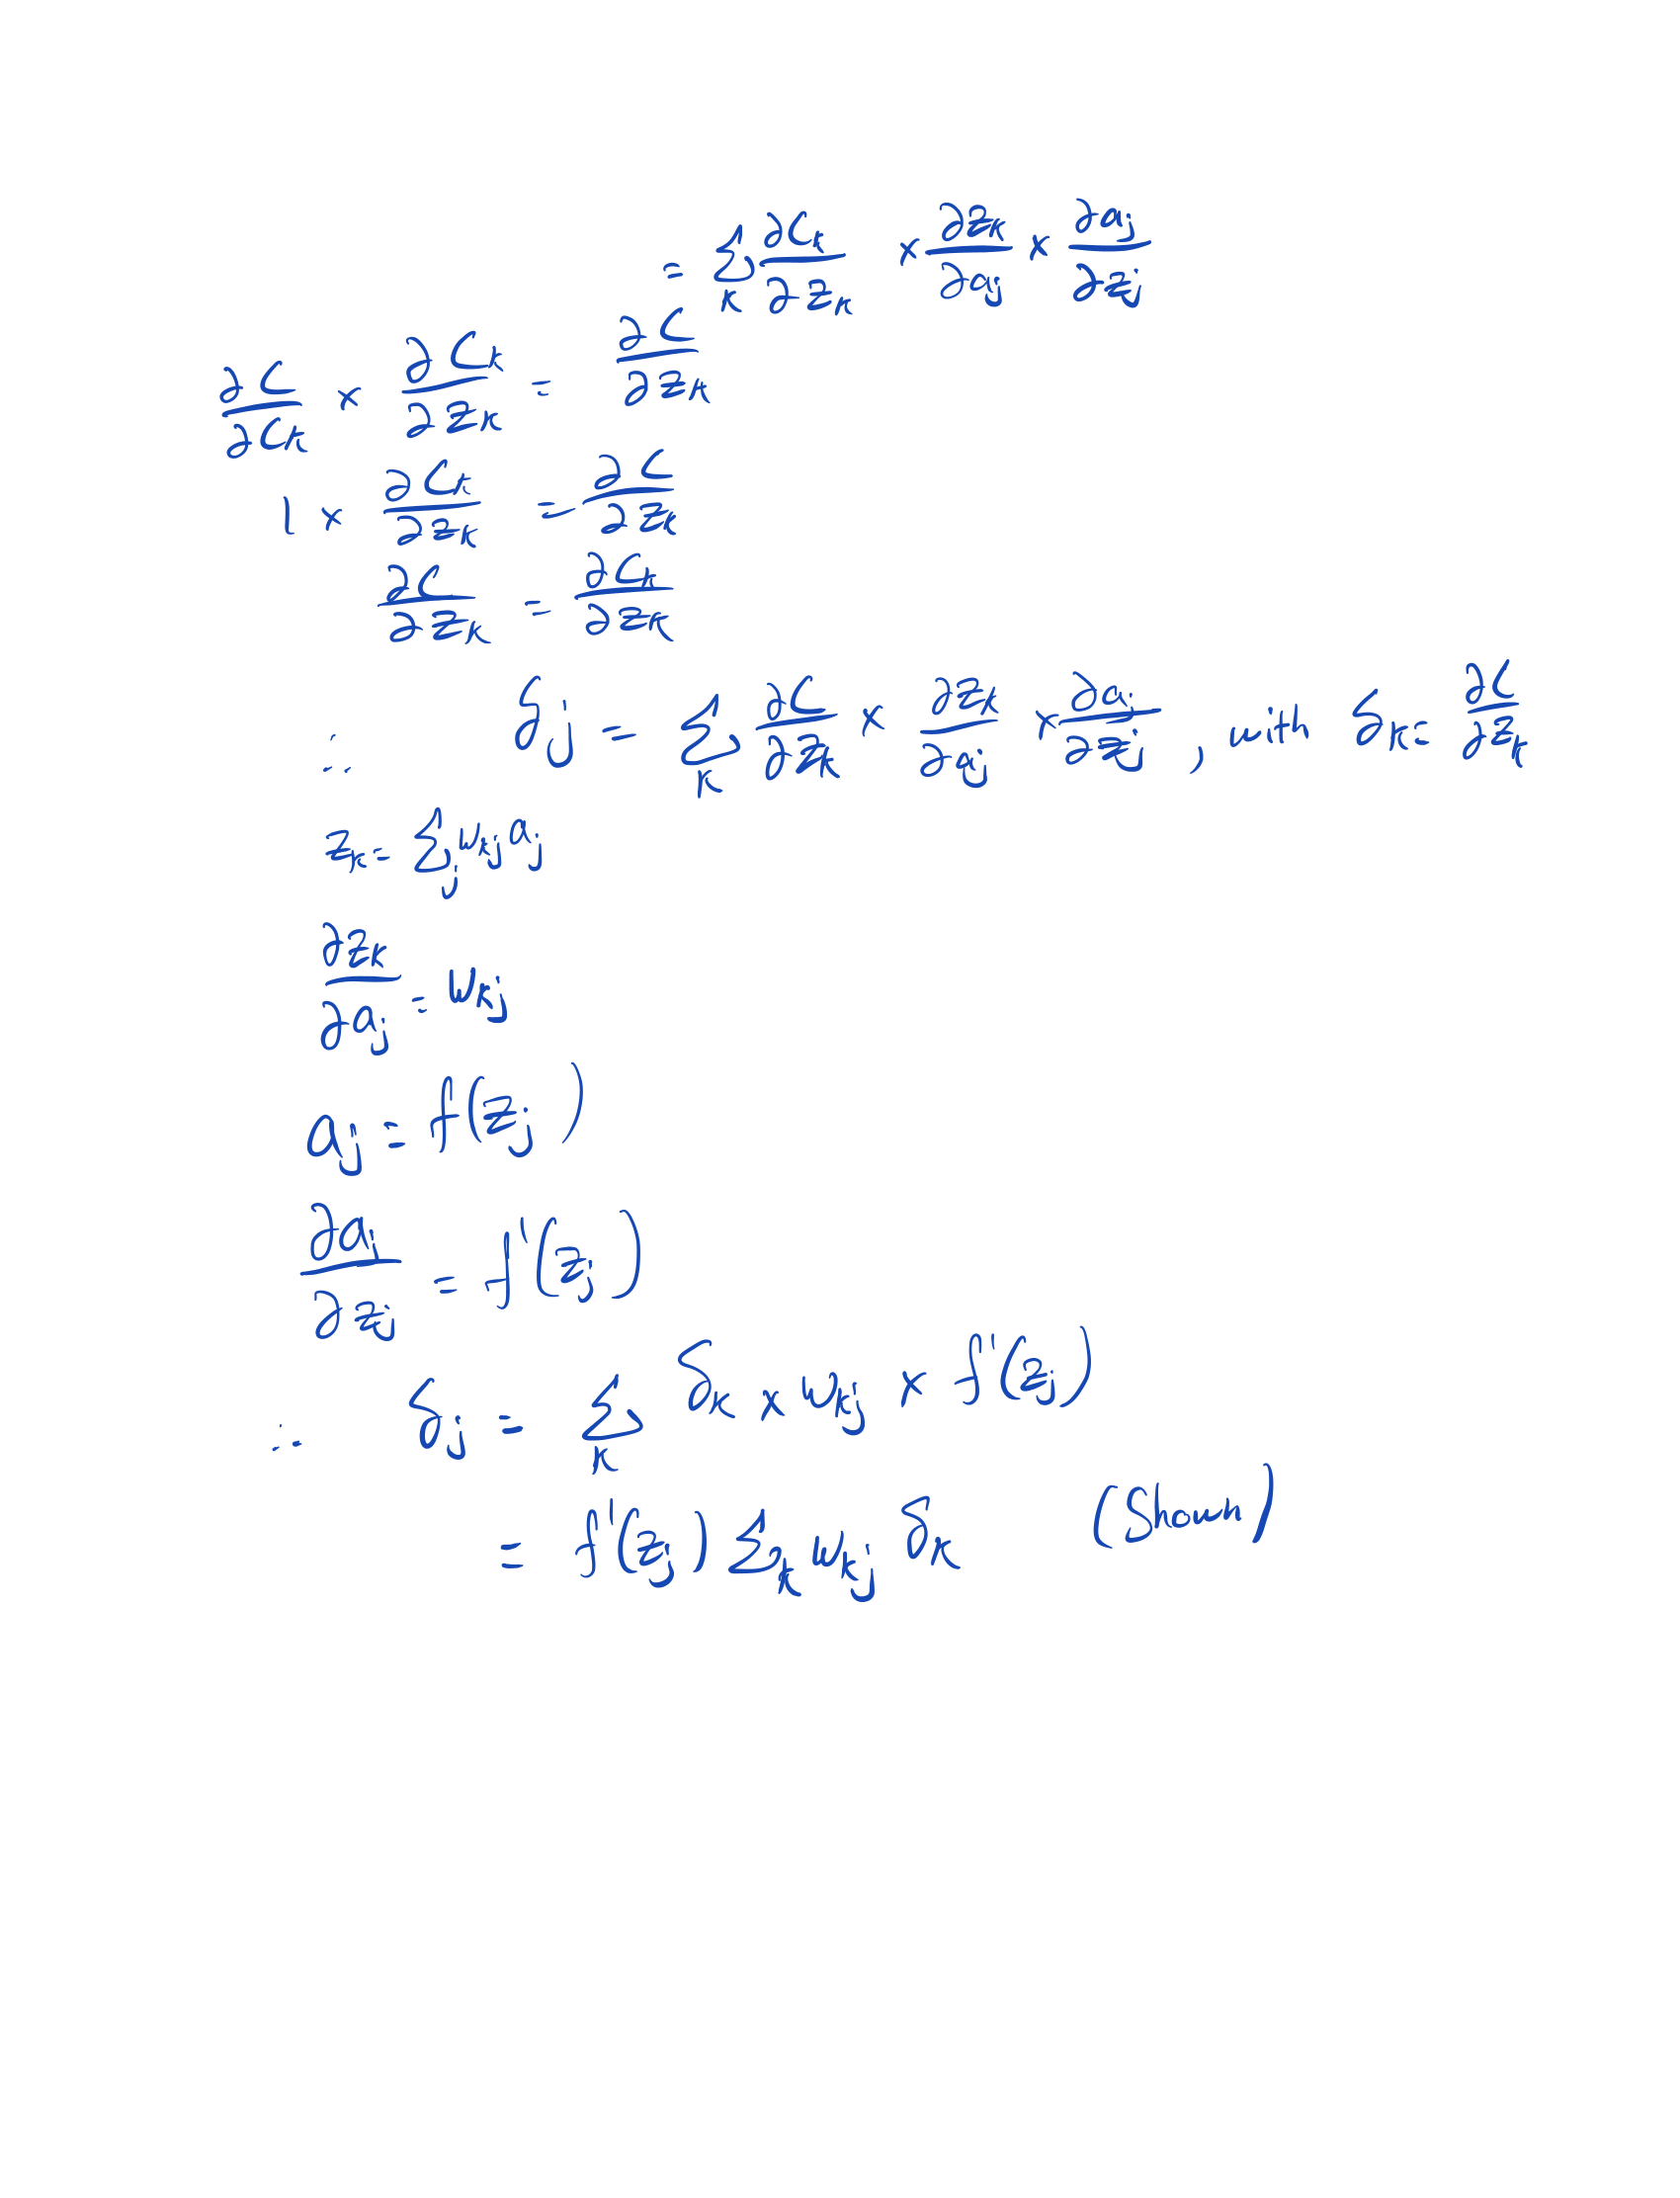 = ∑_k ∂C_k/∂z_k × ∂z_k/∂a_j × ∂a_j/∂z_j
∂C/∂C_k × ∂C_k/∂z_k = ∂C/∂z_k
1 × ∂C_k/∂z_k = ∂C/∂z_k
∂C/∂z_k = ∂C_k/∂z_k
∴ δ_j = ∑_k ∂C/∂z_k × ∂z_k/∂a_j × ∂a_j/∂z_j , with δ_k = ∂C/∂z_k
z_k = ∑_j w_kj a_j
∂z_k/∂a_j = w_kj
a_j = f(z_j)
∂a_j/∂z_j = f'(z_j)
∴ δ_j = ∑_k δ_k × w_kj × f'(z_j)
= f'(z_j) ∑_k w_kj δ_k (Shown)